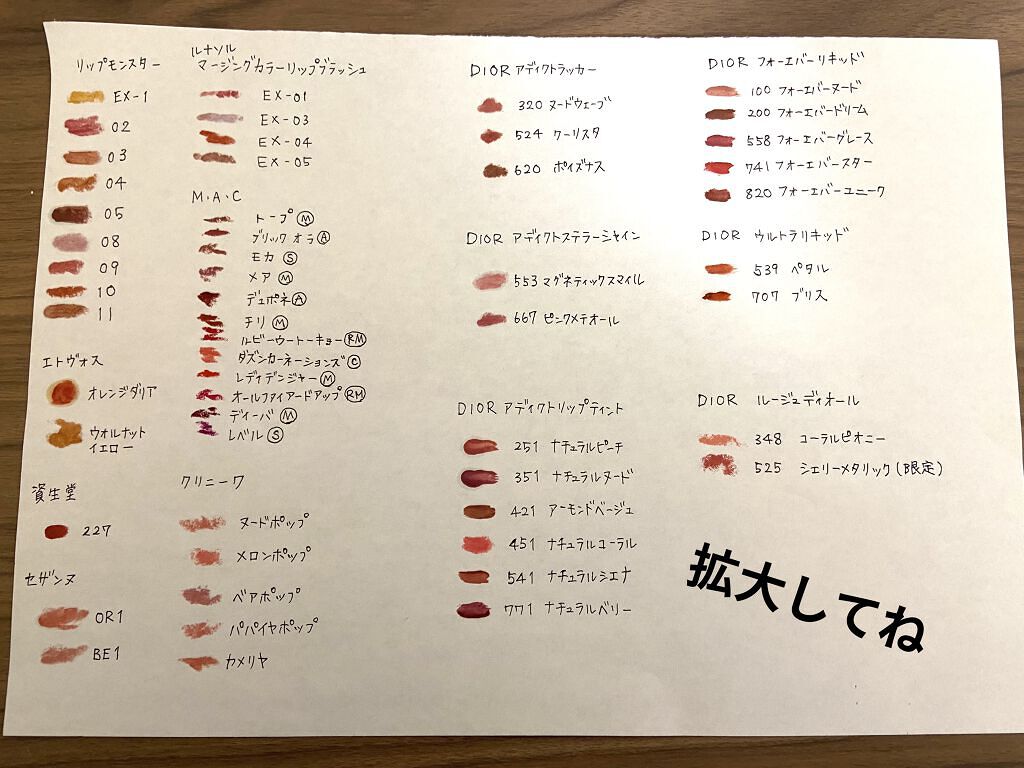 リップモンスター
EX-1
02
03
04
05
08
09
10
11
エトヴォス
オレンジダリア
ウォルナット
イエロー
資生堂
227
セザンヌ
OR1
BE1
ルナソル
マージングカラーリップブラッシュ
EX-01
EX-03
EX-04
EX-05
M・A・C
トープ Ⓜ
ブリックオラ Ⓐ
モカ Ⓢ
メア Ⓜ
デュボネ Ⓐ
チリ Ⓜ
ルビーウートーキョー RM
ダズンカーネーションズ Ⓒ
レディデンジャー Ⓜ
オールファイアードアップ RM
ディーバ Ⓜ
レベル Ⓢ
クリニーク
ヌードポップ
メロンポップ
ベアポップ
パパイヤポップ
カメリヤ
DIOR アディクトラッカー
320 ヌードウェーブ
524 クーリスタ
620 ポイズナス
DIOR アディクトステラーシャイン
553 マグネティックスマイル
667 ピンクメテオール
DIOR アディクトリップティント
251 ナチュラルピーチ
351 ナチュラルヌード
421 アーモンドベージュ
451 ナチュラルコーラル
541 ナチュラルシエナ
771 ナチュラルベリー
DIOR フォーエバーリキッド
100 フォーエバーヌード
200 フォーエバードリーム
558 フォーエバーグレース
741 フォーエバースター
820 フォーエバーユニーク
DIOR ウルトラリキッド
539 ペタル
707 ブリス
DIOR ルージュディオール
348 コーラルピオニー
525 シェリーメタリック(限定)
拡大してね